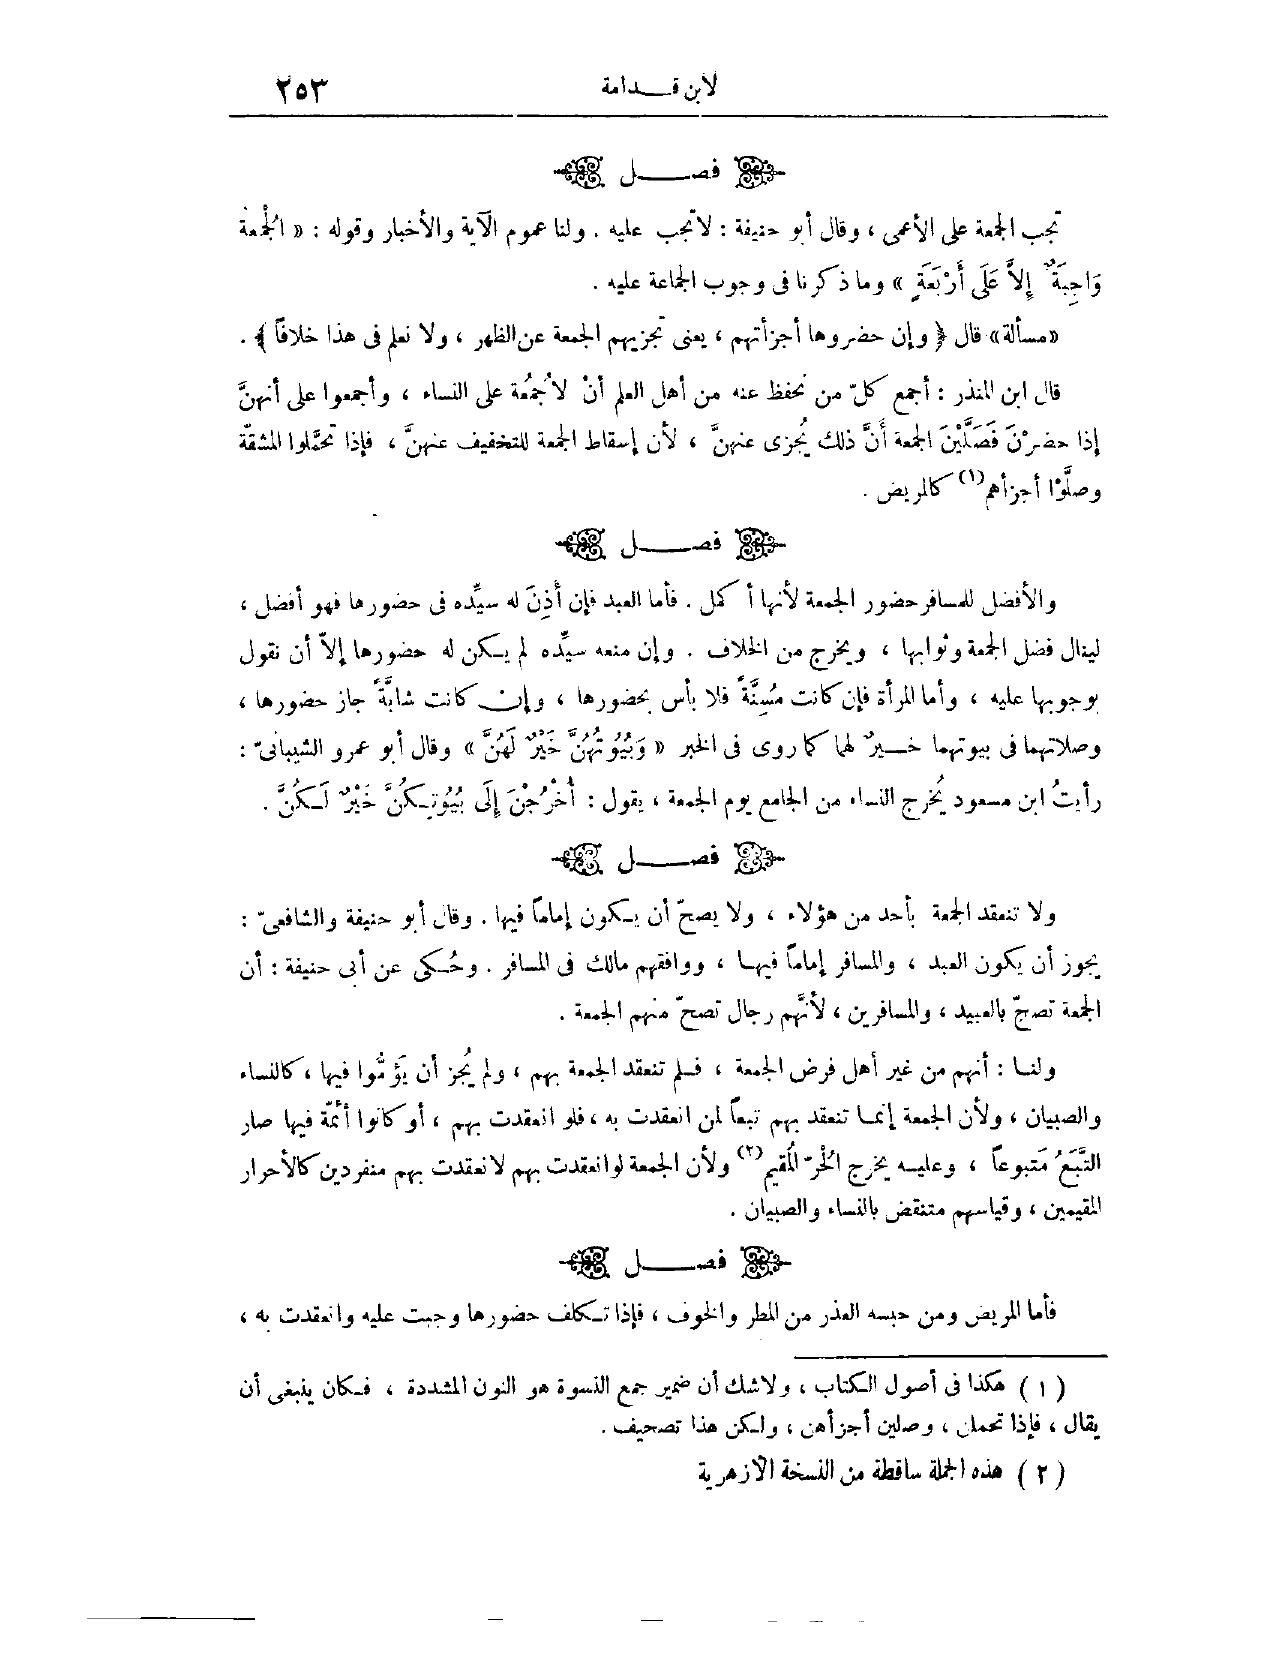 لابن قـــدامة ٢٥٣
فصــــل
تجب الجمعة على الأعمى ، وقال أبو حنيفة : لاتجب عليه . ولنا عموم الآية والأخبار وقوله : « الجُمْعَة
وَاجِبَةٌ إِلاَّ عَلَى أَرْبَعَةٍ » وما ذكرنا فى وجوب الجماعة عليه .
«مسألة» قال ﴿ وإن حضروها أجزأتهم ، يعنى تجزيهم الجمعة عن الظهر ، ولا نعلم فى هذا خلافاً ﴾ .
قال ابن المنذر : أجمع كلّ من نحفظ عنه من أهل العلم أنْ لاجُمُعة على النساء ، وأجمعوا على أنهنَّ
إذا حضرْنَ فَصَلَّيْنَ الجمعة أنَّ ذلك يُجزى عنهنَّ ، لأن إسقاط الجمعة للتخفيف عنهنَّ ، فإذا تحمَّلوا المشقّة
وصلَّوْا أجزأهم(١) كالمريض .
فصــــل
والأفضل للمسافر حضور الجمعة لأنها أكمل . فأما العبد فإن أَذِنَ له سيِّده فى حضورها فهو أفضل ،
لينال فضل الجمعة وثوابها ، ويخرج من الخلاف . وإن منعه سيِّده لم يكن له حضورها إلاّ أن نقول
بوجوبها عليه ، وأما المرأة فإن كانت مُسِنَّةً فلا بأس بحضورها ، وإن كانت شابَّةً جاز حضورها ،
وصلاتهما فى بيوتهما خيرٌ لهما كما روى فى الخبر « وَبُيُوتُهُنَّ خَيْرٌ لَهُنَّ » وقال أبو عمرو الشيبانىّ :
رأيتُ ابن مسعود يُخرج النساء من الجامع يوم الجمعة ، يقول : أُخْرُجْنَ إِلَى بُيُوتِكُنَّ خَيْرٌ لَكُنَّ .
فصــــل
ولا تنعقد الجمعة بأحد من هؤلاء ، ولا يصحّ أن يكون إماماً فيها . وقال أبو حنيفة والشافعىّ :
يجوز أن يكون العبد ، والمسافر إماماً فيها ، ووافقهم مالك فى المسافر . وحُكى عن أبى حنيفة : أن
الجمعة تصحّ بالعبيد ، والمسافرين ، لأنَّهم رجال تصحّ منهم الجمعة .
ولنا : أنهم من غير أهل فرض الجمعة ، فلم تنعقد الجمعة بهم ، ولم يُجز أن يَؤمُّوا فيها ، كالنساء
والصبيان ، ولأن الجمعة إنما تنعقد بهم تبعاً لمن انعقدت به ، فلو انعقدت بهم ، أو كانوا أئمّة فيها صار
التَّبَعُ مَتبوعاً ، وعليه يخرج الحُرّ المُقيم(٢) ولأن الجمعة لو انعقدت بهم لانعقدت بهم منفردين كالأحرار
المقيمين ، وقياسهم متنقض بالنساء والصبيان .
فصــــل
فأما المريض ومن حبسه العذر من المطر والخوف ، فإذا تكلف حضورها وجبت عليه وانعقدت به ،
( ١ ) هكذا فى أصول الكتاب ، ولاشك أن ضمير جمع النسوة هو النون المشددة ، فكان ينبغى أن
يقال ، فإذا تحملن ، وصلين أجزأهن ، ولكن هذا تصحيف .
( ٢ ) هذه الجملة ساقطة من النسخة الأزهرية